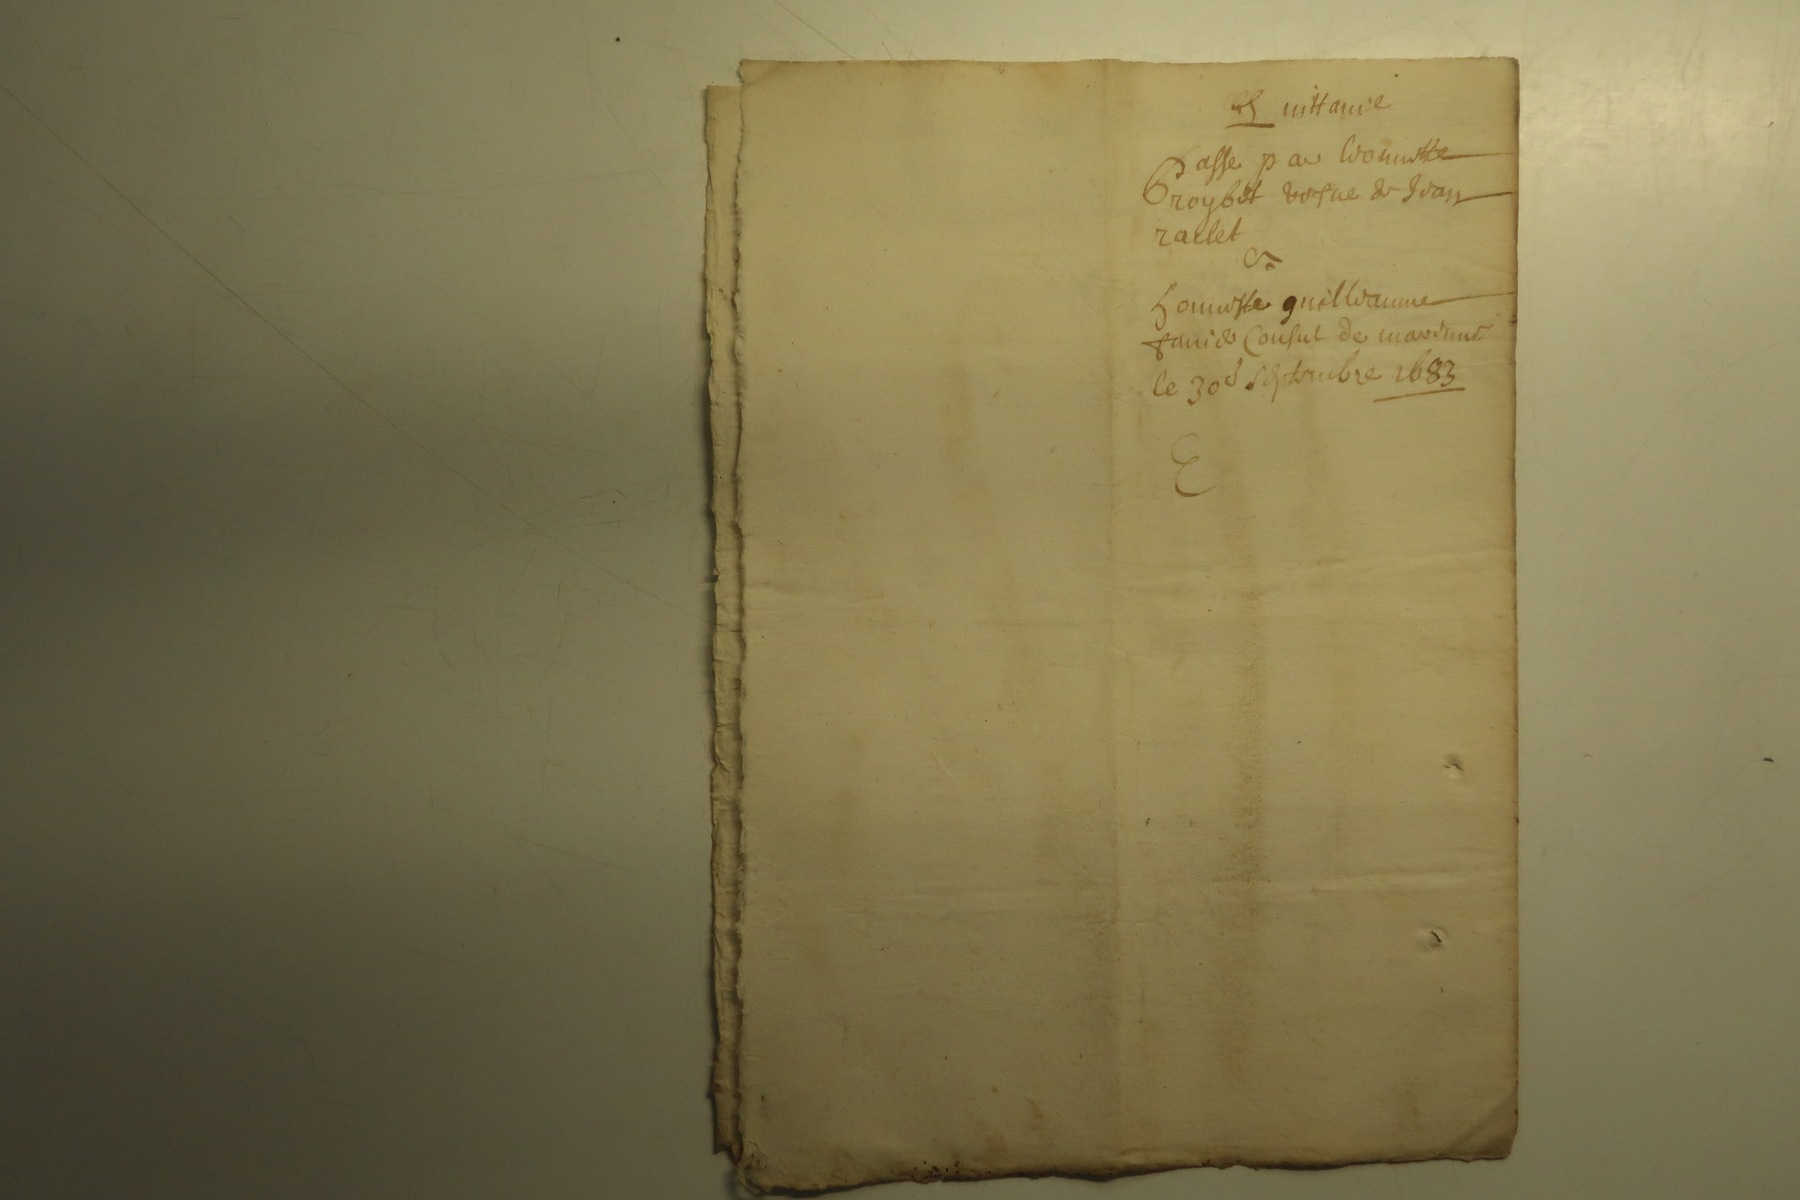 Quittance
Passe par Leonnette
Groybet vefue de Jean
raclet
A
honneste guilleaume
famie Consul de
le 30e Septembre 1683
E